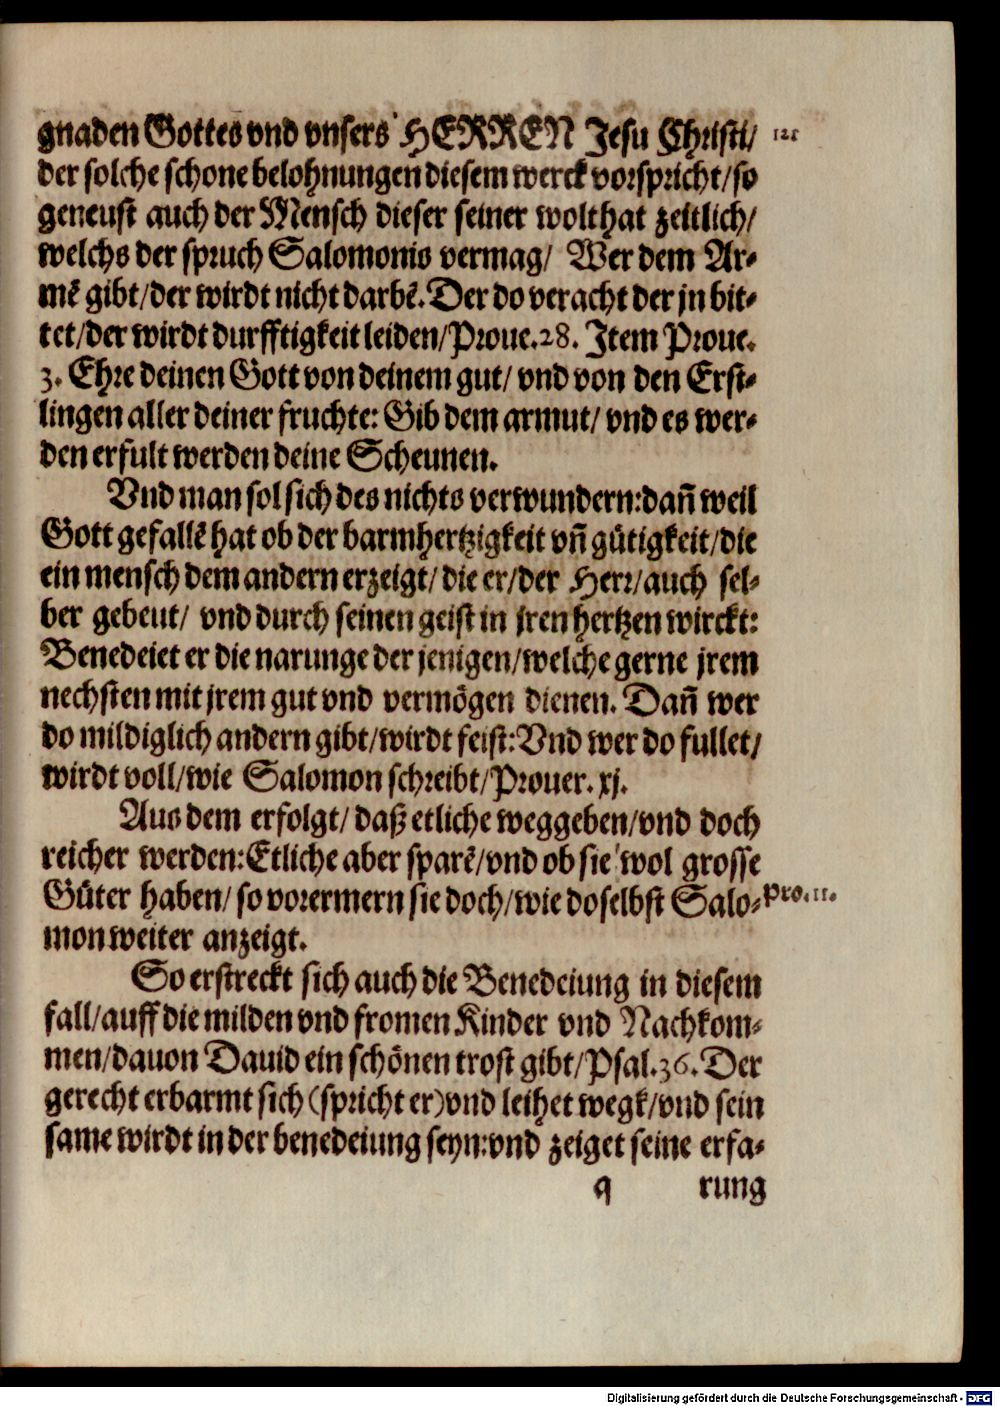 gnaden Gottes vnd vnsers HERREN Jesu Christi/ 121
der solche schone belohnungen diesem werck vorspricht/so
geneust auch der Mensch dieser seiner wolthat zeitlich/
welchs der spruch Salomonis vermag/ Wer dem Ar-
mē gibt/der wirdt nicht darbē. Der do veracht der jn bit-
tet/der wirdt durfftigkeit leiden/Proue.28. Item Proue.
3. Ehre deinen Gott von deinem gut/ vnd von den Erst-
lingen aller deiner fruchte: Gib dem armut/ vnd es wer-
den erfult werden deine Scheunen.
Vnd man sol sich des nichts verwundern:dañ weil
Gott gefallē hat ob der barmhertzigkeit vñ gütigkeit/die
ein mensch dem andern erzeigt/ die er/der Herr/auch sel-
ber gebeut/ vnd durch seinen geist in jren hertzen wirckt:
Benedeiet er die narunge der jenigen/welche gerne jrem
nechsten mit jrem gut vnd vermögen dienen. Dañ wer
do mildiglich andern gibt/wirdt feist:Vnd wer do fullet/
wirdt voll/wie Salomon schreibt/Prouer. xj.
Aus dem erfolgt/ daß etliche weggeben/vnd doch
reicher werden:Etliche aber sparē/vnd ob sie wol grosse
Güter haben/ so vorermern sie doch/wie doselbst Salo- Pro.11.
mon weiter anzeigt.
So erstreckt sich auch die Benedeiung in diesem
fall/auff die milden vnd fromen Kinder vnd Nachkom-
men/dauon Dauid ein schönen trost gibt/Psal.36. Der
gerecht erbarmt sich (spricht er) vnd leihet wegk/vnd sein
same wirdt in der benedeiung seyn:vnd zeiget seine erfa-
q rung
Digitalisierung gefördert durch die Deutsche Forschungsgemeinschaft - DFG